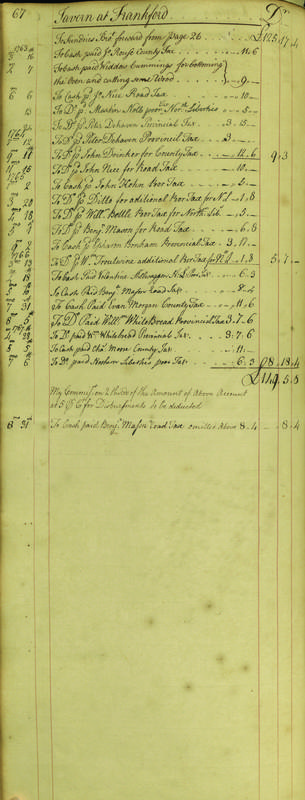 67 Tavern at Frankford Dr
To Sundries Brot forward from page 26 £125.17.4
To Cash paid Jno Rouse County Tax 11.6
To Cash paid Widdow Cummings for bottoming
the Oven and cutting some Wood 9
6 6 To Cash pd Jno Nice Road Tax 10
13 To Do pd Meshier North poor Tax North Liberties 5
To Do pd Peter Dehaven Provincial Tax 3.15
1765 To Do pd Peter Dehaven Provincil Tax 3
9 To Do pd John Drinker for County Tax 12.6 9.3
11 To Do pd John Nice for Road Tax 10
2 To Cash pd John Hohn Poor Tax 5
3 20 To Do pd Ditto for aditional Poor Tax for N L 1.8
4 18 To Do pd Willm Bettle Poor Tax for North Lib 5
5 To Do pd Benj Mason for Road Tax 6.8
To Cash pd Dehaven Bonham Provincial Tax 3.17
1766 To Do pd Wm Troutwine additional Poor Tax for N L 1.8 5.7
7 19 To Cash Paid Valentine N L Poor Tax 6.3
To Cash Paid Benj Mason Road Tax 8.4
7 31 To Cash Paid Evan Morgan County Tax 11.6
To Do Paid Willm White Bread Provincial Tax 3.7.6
To Do paid Wm Whitebread Provincial Tax 3.7.6
5 To Cash paid Chas Moore County Tax 11
7 6 To Do paid Northern Liberties poor Tax 6.3 8.18.4
£149.5.8
My Commission & Paids of the Amount of Above Account
at 5 for Disbursments to be deducted
8 31 To Cash paid Benj Mason road Tax omitted Above 8.4 8.4